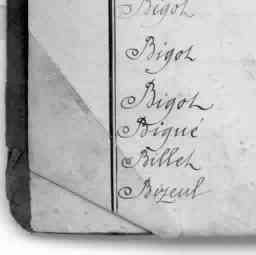 Bigot
Bigot
Bigot
Bigué
Billet
Bizeul